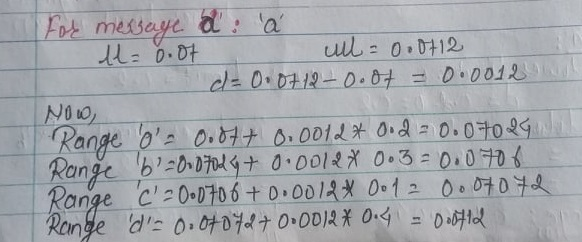 For message d : 'a'
ll = 0.07 ul = 0.0712
d = 0.0712 - 0.07 = 0.0012
Now,
Range 'a' = 0.07 + 0.0012 * 0.2 = 0.07024
Range 'b' = 0.07024 + 0.0012 * 0.3 = 0.0706
Range 'c' = 0.0706 + 0.0012 * 0.1 = 0.07072
Range 'd' = 0.07072 + 0.0012 * 0.4 = 0.0712